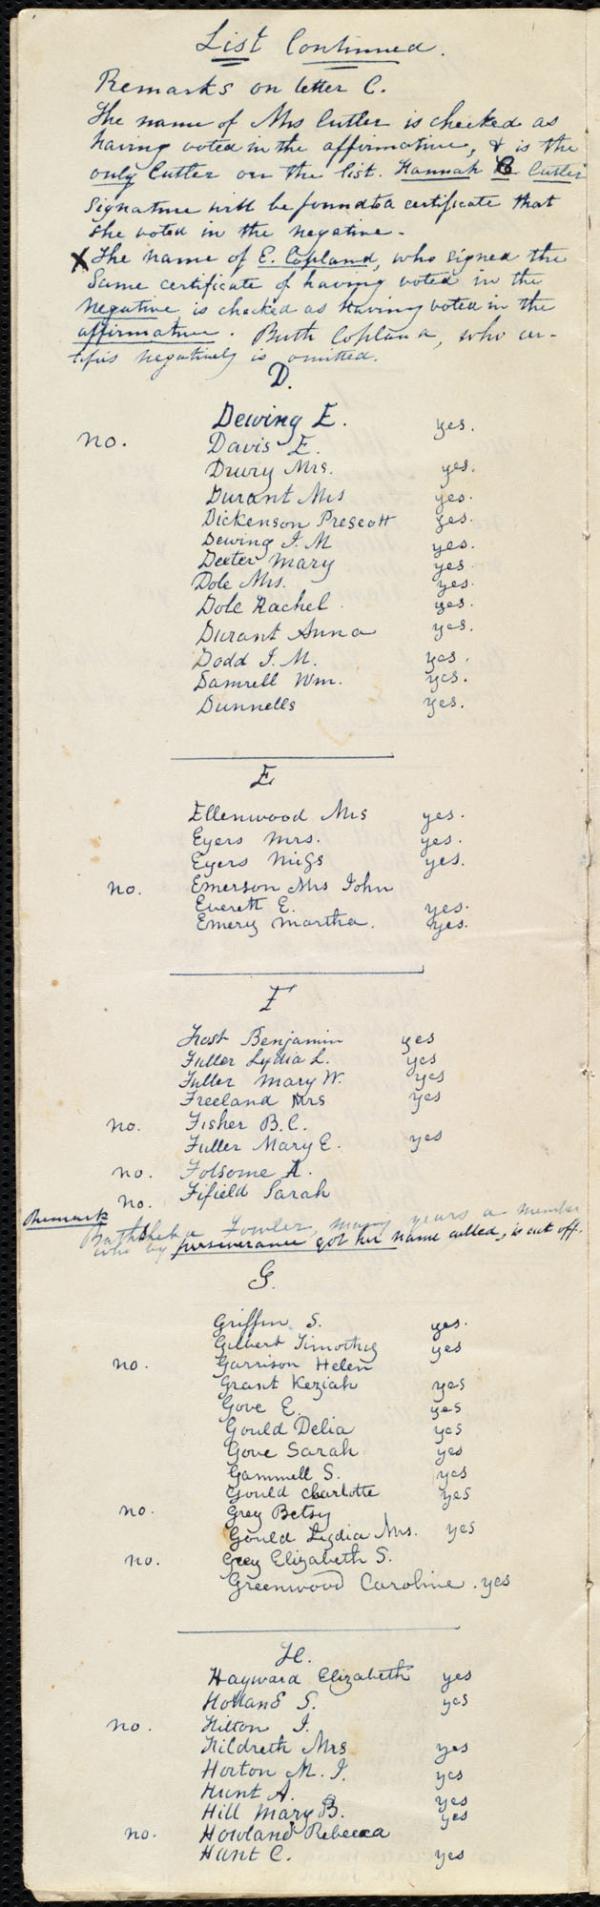 List Continued.
Remarks on letter C.
The name of Mrs Cutler is checked as
having voted in the affirmative, & is the
only Cutler on the list. Hannah Cutler
signature will be found to a certificate that
she voted in the negative.
X The name of E. Copland, who signed the
same certificate of having voted in the
negative is checked as having voted in the
affirmative. Ruth Copland, who cer-
tifies negatively is omitted.
D.
Dewing E. yes.
no. Davis E.
Drury Mrs. yes.
Durant Mrs yes.
Dickenson Prescott yes.
Dewing I. M yes.
Dexter Mary yes.
Dole Mrs. yes.
Dole Rachel yes.
Durant Anna yes.
Dodd I. M. yes.
Damrell Wm. yes.
Dunnells yes.
E
Ellenwood Mrs yes.
Eyers Mrs. yes.
Eyers Miss yes.
no. Emerson Mrs John
Everett E. yes.
Emery Martha. yes.
F
Frost Benjamin yes
Fuller Lydia L. yes
Fuller Mary W. yes
Freeland Mrs yes
no. Fisher B. C.
Fuller Mary E. yes
no. Folsome A.
no. Fifield Sarah
Remark Bathsheba Fowler, many years a member
who by perseverance got her name called, is cut off.
G.
Griffin S. yes.
Gilbert Timothy yes
no. Garrison Helen
Grant Keziah yes
Gove E. yes
Gould Delia yes
Gove Sarah yes
Gammell S. yes
Gould Charlotte yes
no. Grey Betsy
Gould Lydia Mrs. yes
no. Grey Elizabeth S.
Greenwood Caroline. yes
H.
Hayward Elizabeth yes
Holland S. yes
no. Hilton I.
Hildreth Mrs yes
Horton M. I. yes
Hunt A. yes
Hill Mary B. yes
no. Howland Rebecca
Hunt C. yes